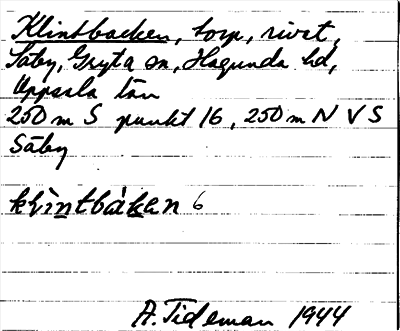 Klintbacken, torp, rivet,
Säby, Gryta sn, Hagunda hd,
Uppsala län
250 m S punkt 16, 250 m N V S
Säby
klìntbàkan 6
A. Tideman 1944